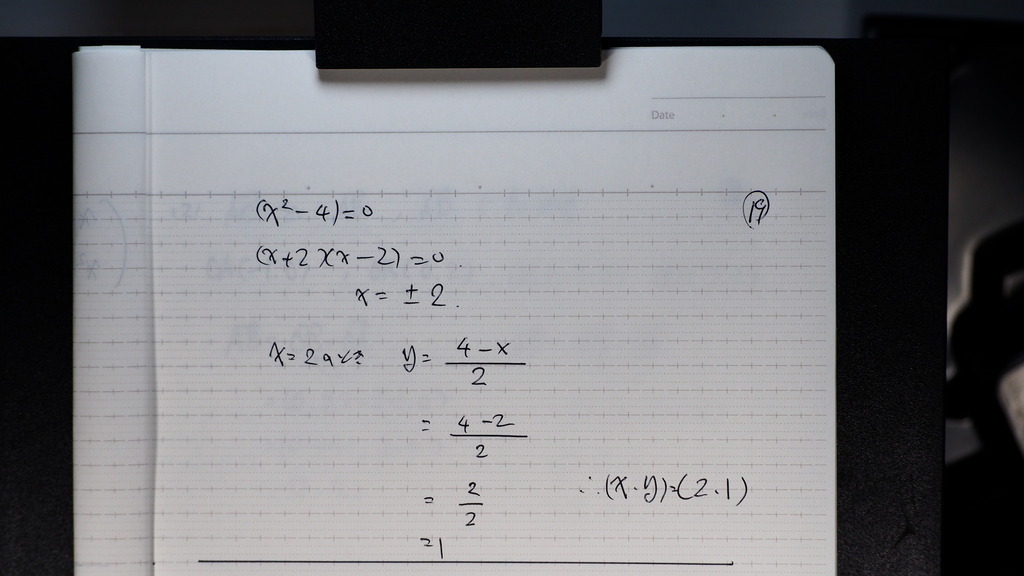 Date
(x²-4)=0
⑲
(x+2)(x-2)=0.
x=±2.
x=2のとき y=4-x/2
=4-2/2
=2/2
∴(x.y)=(2.1)
=1